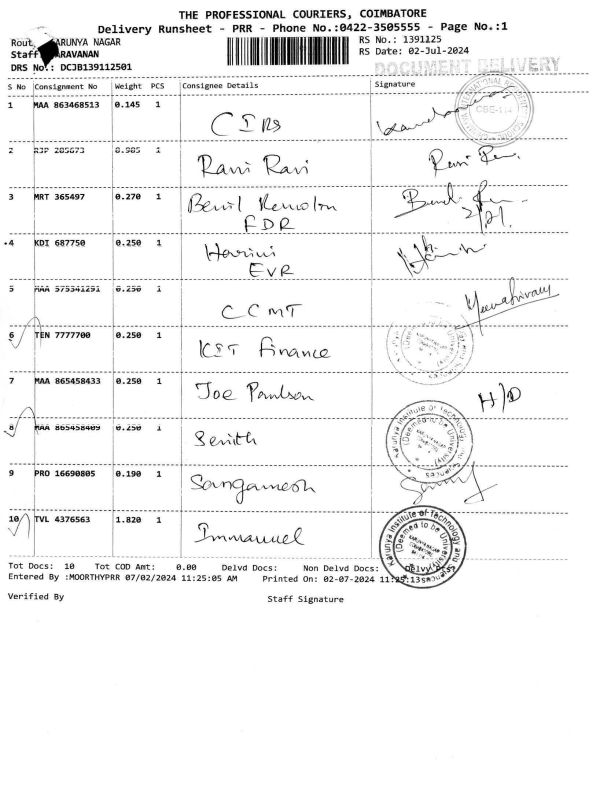 THE PROFESSIONAL COURIERS, COIMBATORE
Delivery Runsheet - PRR - Phone No.:0422-3505555 - Page No.:1
Rout ARUNYA NAGAR
RS No.: 1391125
Staff ARAVANAN
RS Date: 02-Jul-2024
DRS No.: DCJB139112501
DOCUMENT DELIVERY
S No Consignment No Weight PCS Consignee Details Signature
1 MAA 863468513 0.145 1
CIRS
2 285673 0.985 1
Ravi Ravi
3 MRT 365497 0.270 1
FDR
4 KDI 687750 0.250 1
Harini
EVR
5 MAA 575541291 0.250 1
CCMT
6 TEN 7777700 0.250 1
Finance
7 MAA 865458433 0.250 1
Joe Paulson
H/D
8 MAA 865458409 0.250 1
Senith
9 PRO 16690805 0.190 1
Sangamesh
10 TVL 4376563 1.820 1
Immanuel
Karunya Institute of Technology and Sciences
(Deemed to be University)
Tot Docs: 10 Tot COD Amt: 0.00 Delvd Docs: Non Delvd Docs: Delvy Pts?
Entered By :MOORTHYPRR 07/02/2024 11:25:05 AM Printed On: 02-07-2024 11:25:13
Verified By Staff Signature